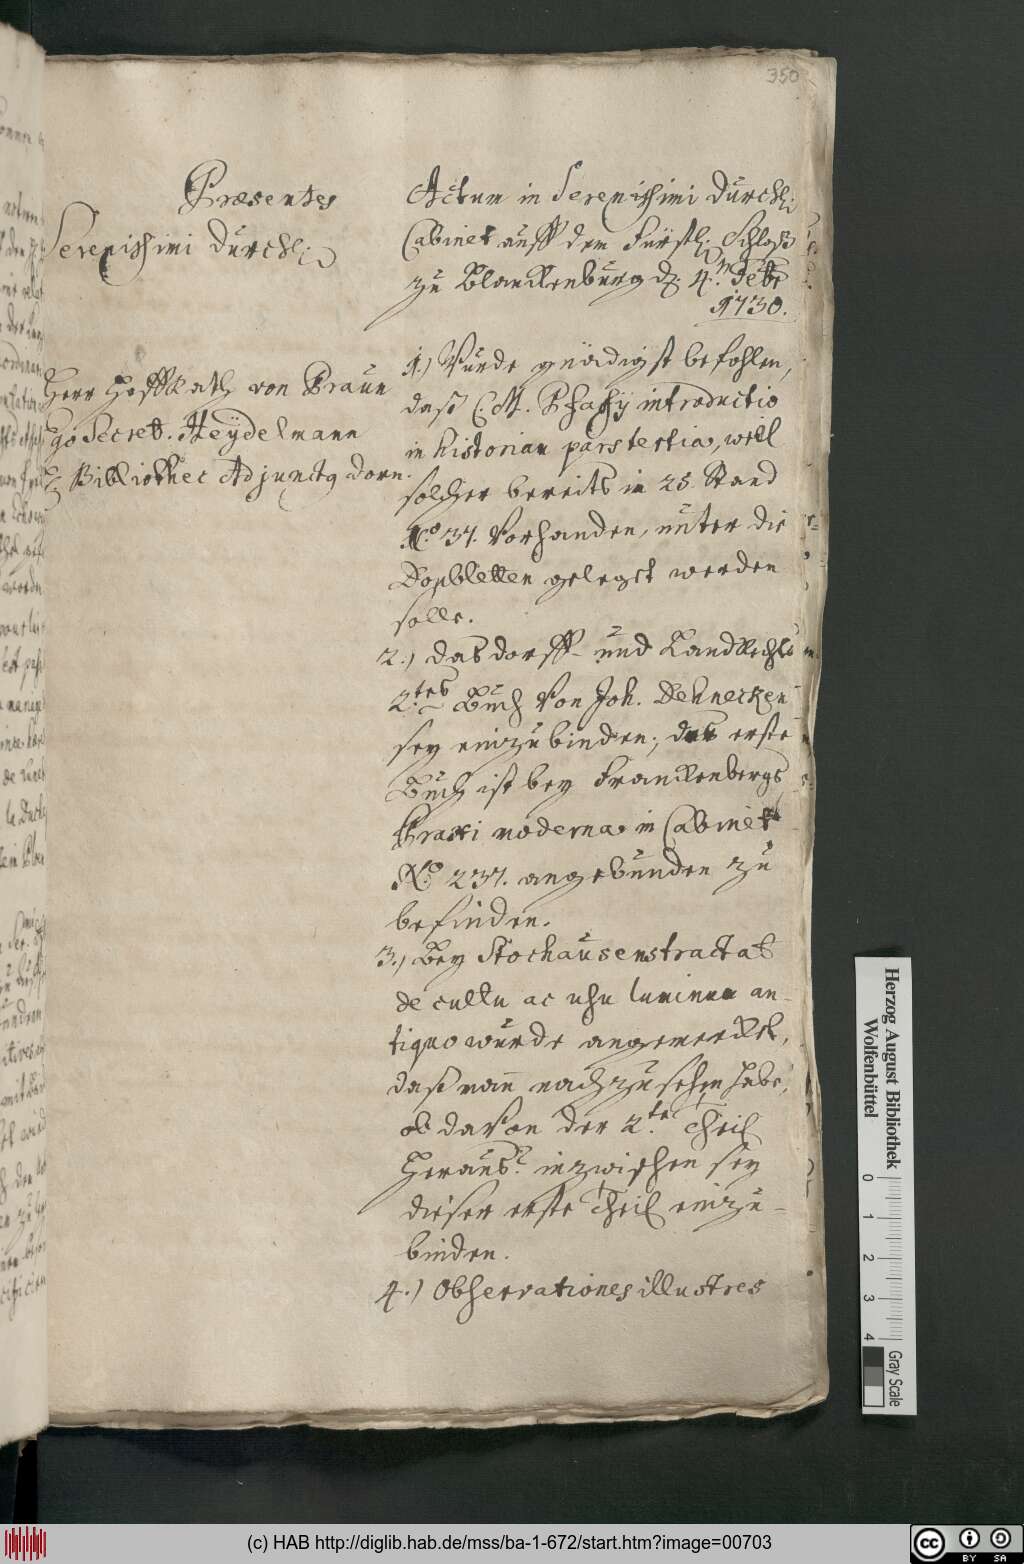 350
Præsentes
Serenissimi Durchl.
Herr Hoffrath von Praun
Secret. Heÿdelmann
Bibliothec Adjunctg Dorn.
Actum in Serenissimi Durchl.
Cabinet auff dem Fürstl. Schloß
zu Blanckenburg d. 4. Febr
1730.
1.) Wurde gnädigst befohlen,
daß C. M. Pfaffij introductio
in historiam pars tertia, weil
solcher bereits in 25. Stand
No. 37. vorhanden, unter die
Doubletten gelegt werden
solle.
2.) Das dorff- und Landrechts
2.tes Buch von Joh. Dehnecken
sey einzubinden; das erste
Buch ist bey Franckenbergs
Praxi moderna in Cabinet
No. 237. angebunden zu
befinden.
3.) Bey Stockausens tractat
de cultu ac usu luminum an-
tiquo wurde angemercket,
daß man nachzusehen habe,
ob davon der 2.te Theil
heraus? inzwischen sey
dieser erste Theil einzu-
binden.
4.) Observationes illustres
Herzog August Bibliothek
Wolfenbüttel
0 1 2 3 4
Gray Scale
(c) HAB http://diglib.hab.de/mss/ba-1-672/start.htm?image=00703
CC BY SA